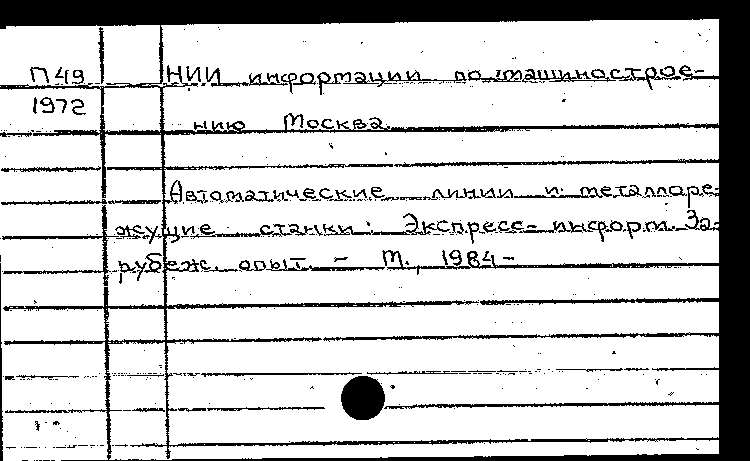 П49 НИИ информации по машинострое-
1972
нию Москва.
Автоматические линии и металлоре-
жущие станки: Экспресс-информ. За-
рубеж. опыт. - М., 1984-